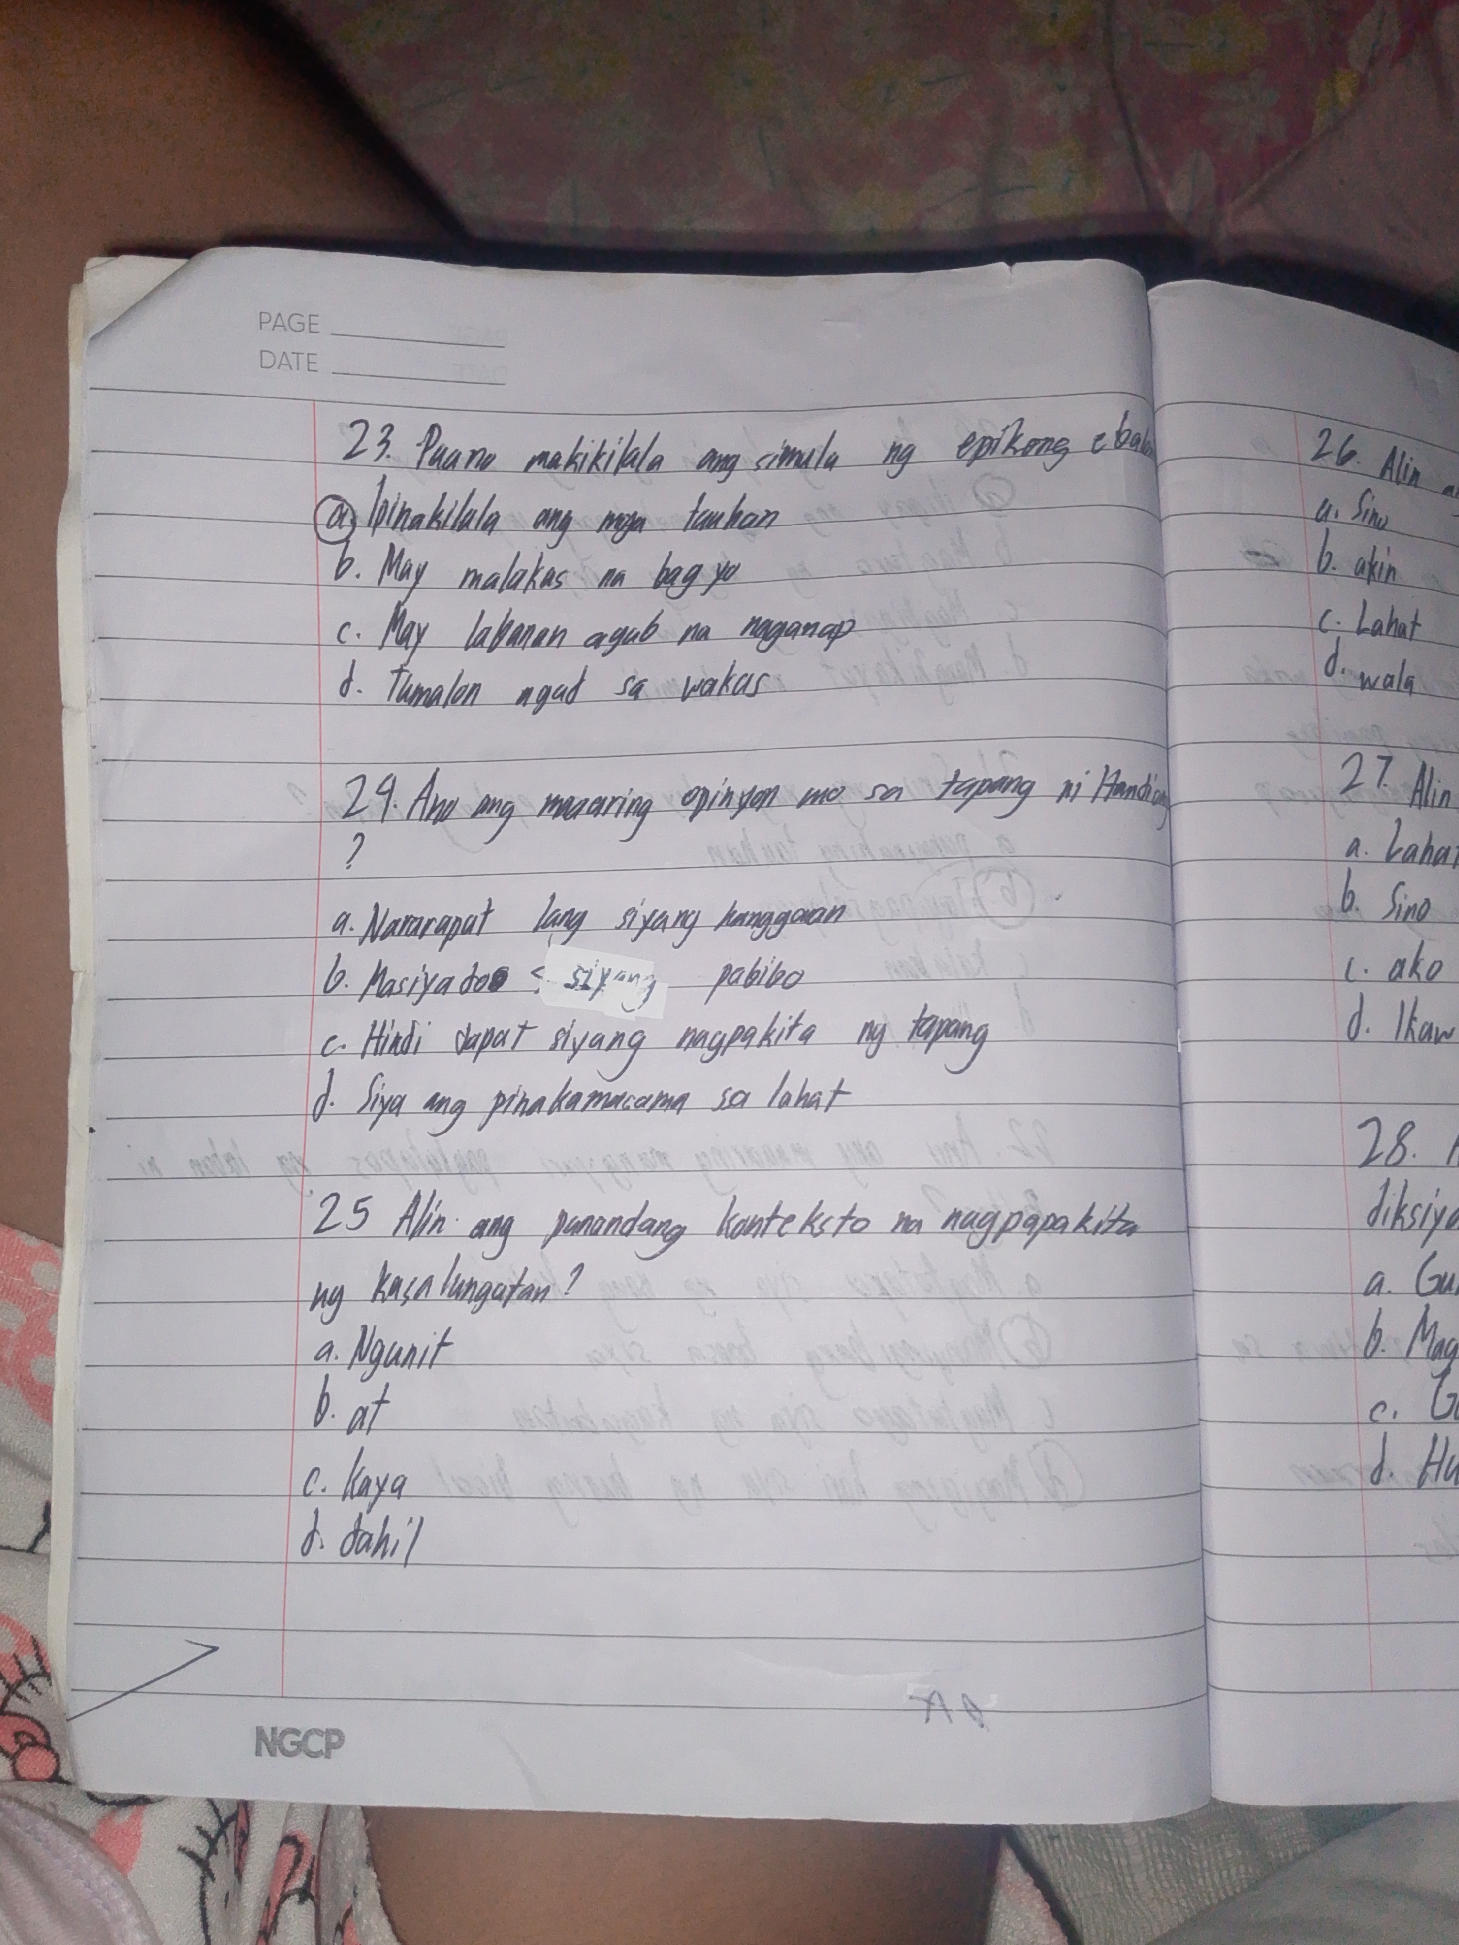 PAGE
DATE
23. Paano makikilala ang simula ng epikong
a. Ipinakilala ang mga tauhan
b. May malakas na bagyo
c. May labanan agab na naganap
d. Tumalon agad sa wakas
24. Ano ang maaaring opinyon mo sa tapang ni
?
a. Nararapat lang siyang hanggaan
b. Masiyado siyang pabibo
c. Hindi dapat siyang nagpakita ng tapang
d. Siya ang pinakamasama sa lahat
25 Alin ang panandang konteksto na nagpapakita
ng kasalungatan?
a. Ngunit
b. at
c. kaya
d. dahil
NGCP
26. Alin
a. Sino
b. akin
c. Lahat
d. wala
27. Alin
a.
b. Sino
c. ako
d. Ikaw
28.
a.
b.
c.
d.